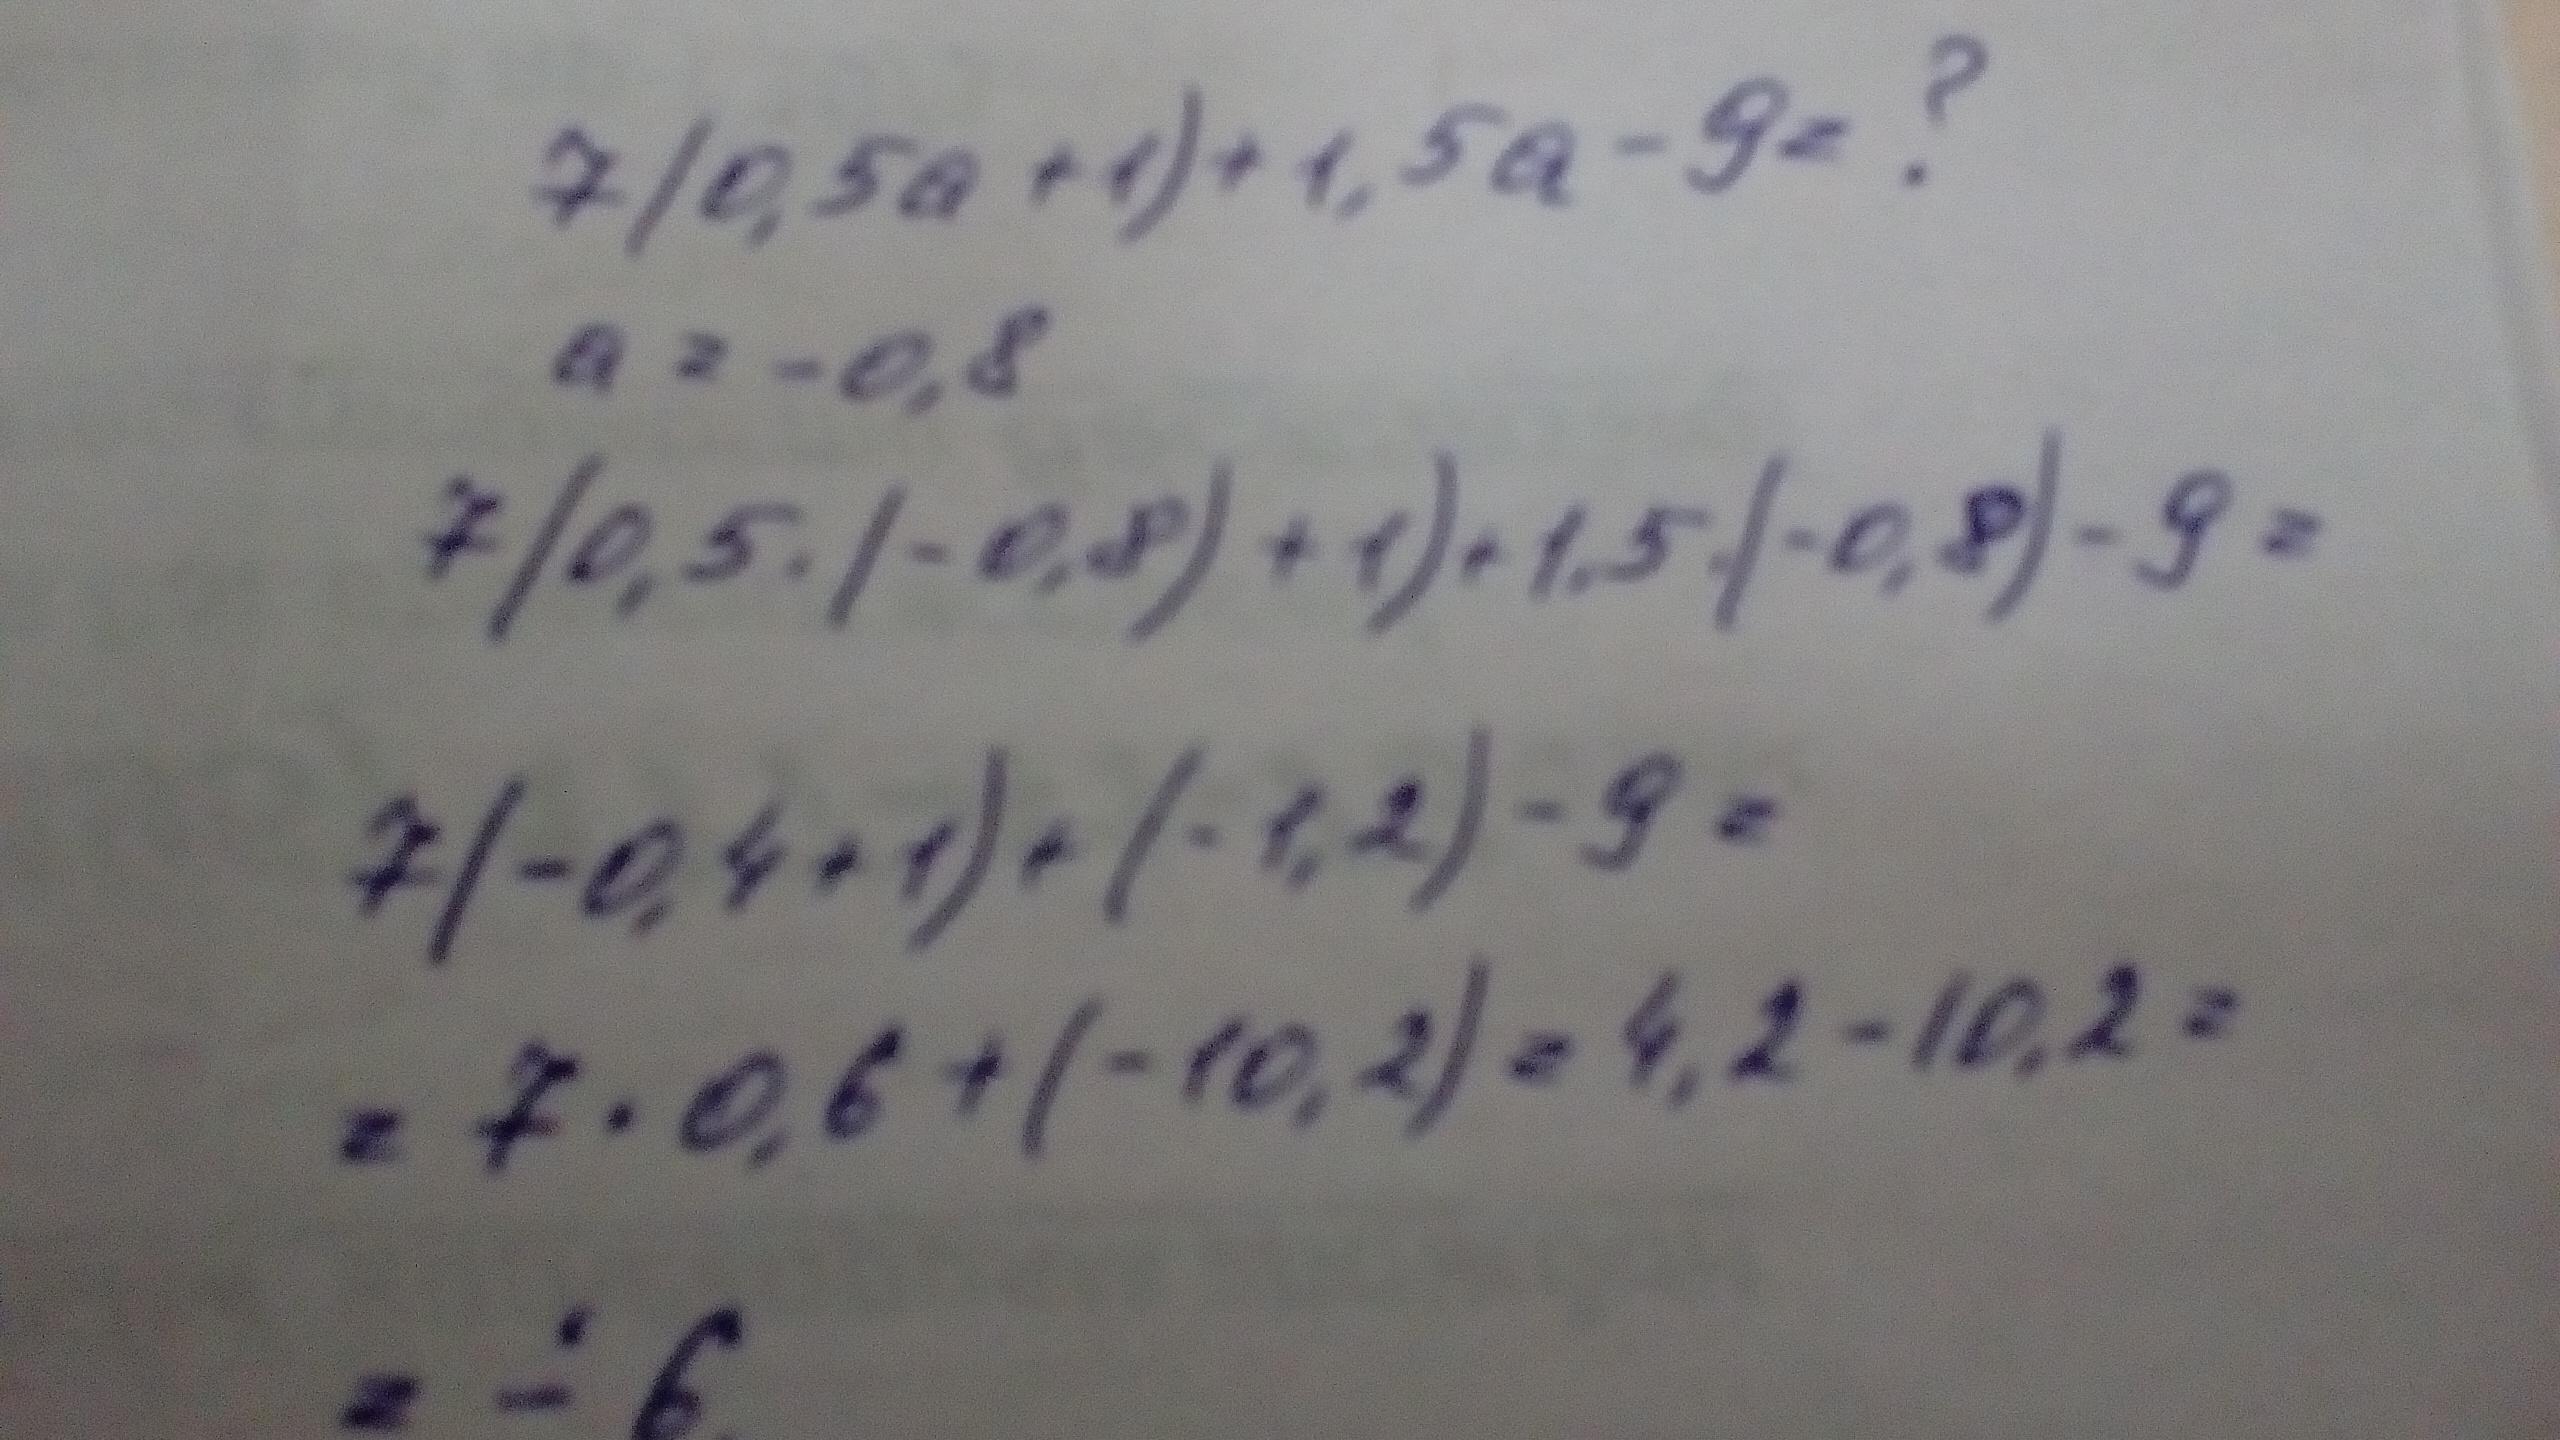 7(0,5a+1)+1,5a-9=?
a=-0,8
7(0,5·(-0,8)+1)+1,5·(-0,8)-9=
7(-0,4+1)+(-1,2)-9=
=7·0,6+(-10,2)=4,2-10,2=
=-6